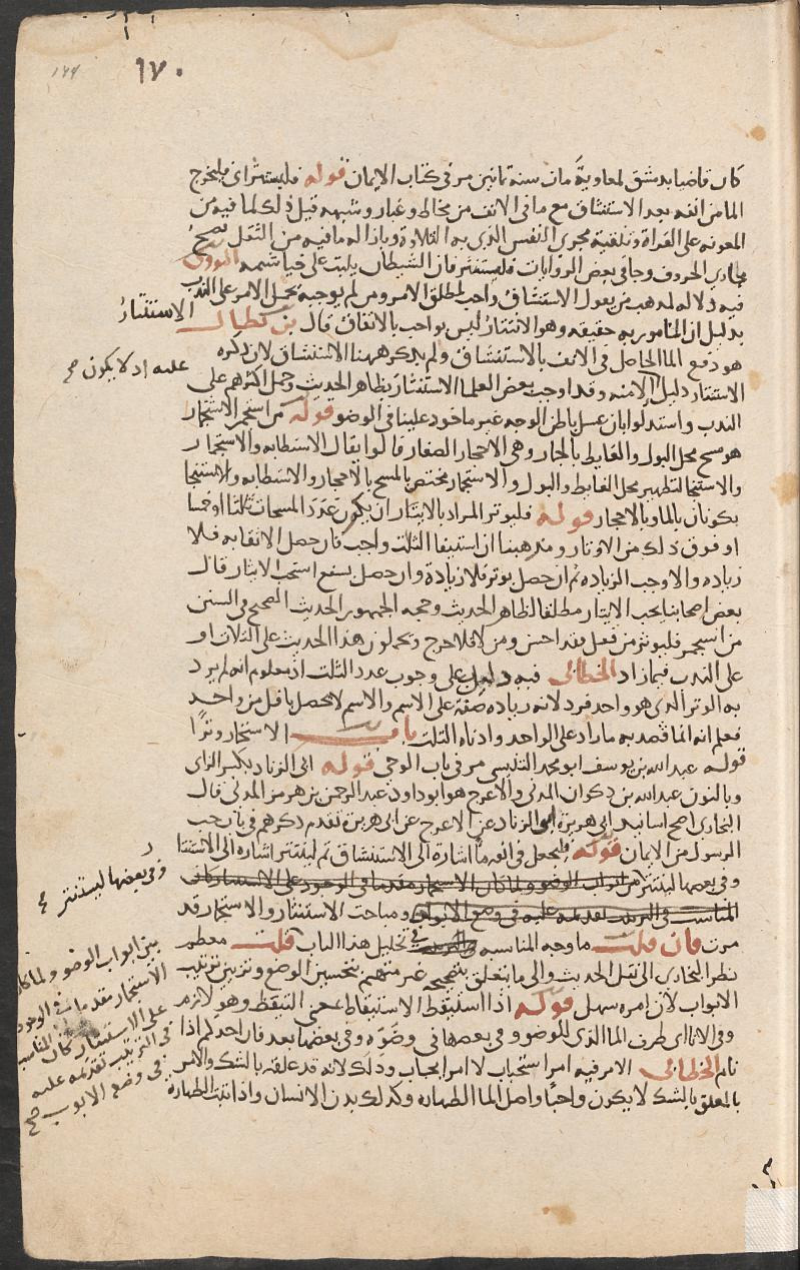 ١٧٠
كان قاضيا بدمشق لمعاوية مات سنة ثمانين مر في كتاب الايمان قوله فليستنثر اي فليخرج
الما من انفه بعد الاستنشاق مع ما في الانف من مخاط وغبار وشبهه قيل ذلك لما فيه من
المعونه على القراة وتنقية مجرى النفس الذي به التلاوة وبازاله ما فيه من الثفل تصح
مجاري الحروف وجا في بعض الروايات فليستنثر فان الشيطان يبيت على خياشمه النووي
فيه دلاله لمذهب من يقول الاستنشاق واجب لمطلق الامر ومن لم يوجبه يحمل الامر على الندب
بدليل ان المامور به حقيقه وهو الانتثار ليس بواجب بالاتفاق قال بن بطال الاستنثار
هو دفع الما الحاصل في الانف بالاستنشاق ولم يذكر ههنا الاستنشاق لان ذكره
الاستنثار دليل عليه اذ لا يكون صح الا منه وقد اوجب بعض العلما الاستنثار بظاهر الحديث وحمل اكثرهم على
الندب واستدلوا بان غسل باطن الوجه غير ماخوذ علينا في الوضو قوله من استجمر الاستجمار
هو مسح محل البول والغايط بالجمار وهي الاحجار الصغار قالوا يقال الاستطابه والاستجمار
والاستنجا لتطهير محل الغايط والبول والاستجمار مختص بالمسح بالاحجار والاستطابه والاستنجا
يكونان بالما وبالاحجار قوله فليوتر المراد بالايتار ان يكون عدد المسحات ثلثا او خمسا
او فوق ذلك من الاوتار ومذهبنا ان استيفا الثلث واجب فان حصل الانقا به فلا
زياده والا وجب الزياده ثم ان حصل بوتر فلا زيادة وان حصل بشفع استحب الايتار قال
بعض اصحابنا يجب الايتار مطلقا لظاهر الحديث وحجه الجمهور الحديث الصحيح في السنن
من استجمر فليوتر من فعل فقد احسن ومن لا فلا حرج ويحملون هذا الحديث على الثلاث او
على الندب فيما زاد الخطابى فيه دليل على وجوب عدد الثلث اذ معلوم انه لم يرد
به الوتر الذي هو واحد فرد لانه زياده صفة على الاسم والاسم لا يحصل باقل من واحد
فعلم انه انما قصد به ما زاد على الواحد وادناه الثلث باب الاستجمار وترا
قوله عبد الله بن يوسف ابو محمد التنيسي مر في باب الوحي قوله ابى الزناد بكسر الزاى
وبالنون عبد الله بن ذكوان المدنى والاعرج هو ابو داود عبد الرحمن بن هرمز المدني قال
البخارى اصح اسانيد ابى هريرة ابو الزناد عن الاعرج عن ابى هريرة تقدم ذكرهم في باب حب
الرسول من الايمان قوله فليجعل في انفه ما اشارة الى الاستنشاق ثم لينتثر اشاره الى الاستنثار
وفي بعضها لينتثر من ابواب الوضو ولما كان الاستجمار مقدما في الوجود على الاستنثار كان
المناسب في الترتيب تقديمه عليه في وضع الابواب ومباحث الاستنثار والاستجمار قد
مرت فان قلت ما وجه المناسبه في تخليل هذا الباب قلت معظم
نظر البخارى الى نقل الحديث والى ما يتعلق بتصحيحه غير متهم بتحسين الوضع وتزيين ترتيب
الابواب لان امره سهل قوله اذا استيقظ الاستيقاظ بمعنى التيقظ وهو لازم
وفي الاناى اى ظرف الما الذي للوضو وفي بعضها في وضوه وفي بعضها بعد فان احدكم اذا
نام الخطابى الامر فيه امر استحباب لا امر ايجاب وذلك لانه قد علقه بالشك والامر
المعلق بالشك لا يكون واجبا واصل الما الطهاره وكذلك بدن الانسان واذا ثبتت الطهاره
وفي بعضها ليستنثر صح
بين ابواب الوضو ولما كان
الاستجمار مقدما في الوجود
على الاستنثار كان المناسب
في الترتيب تقديمه عليه
في وضع الابواب صح